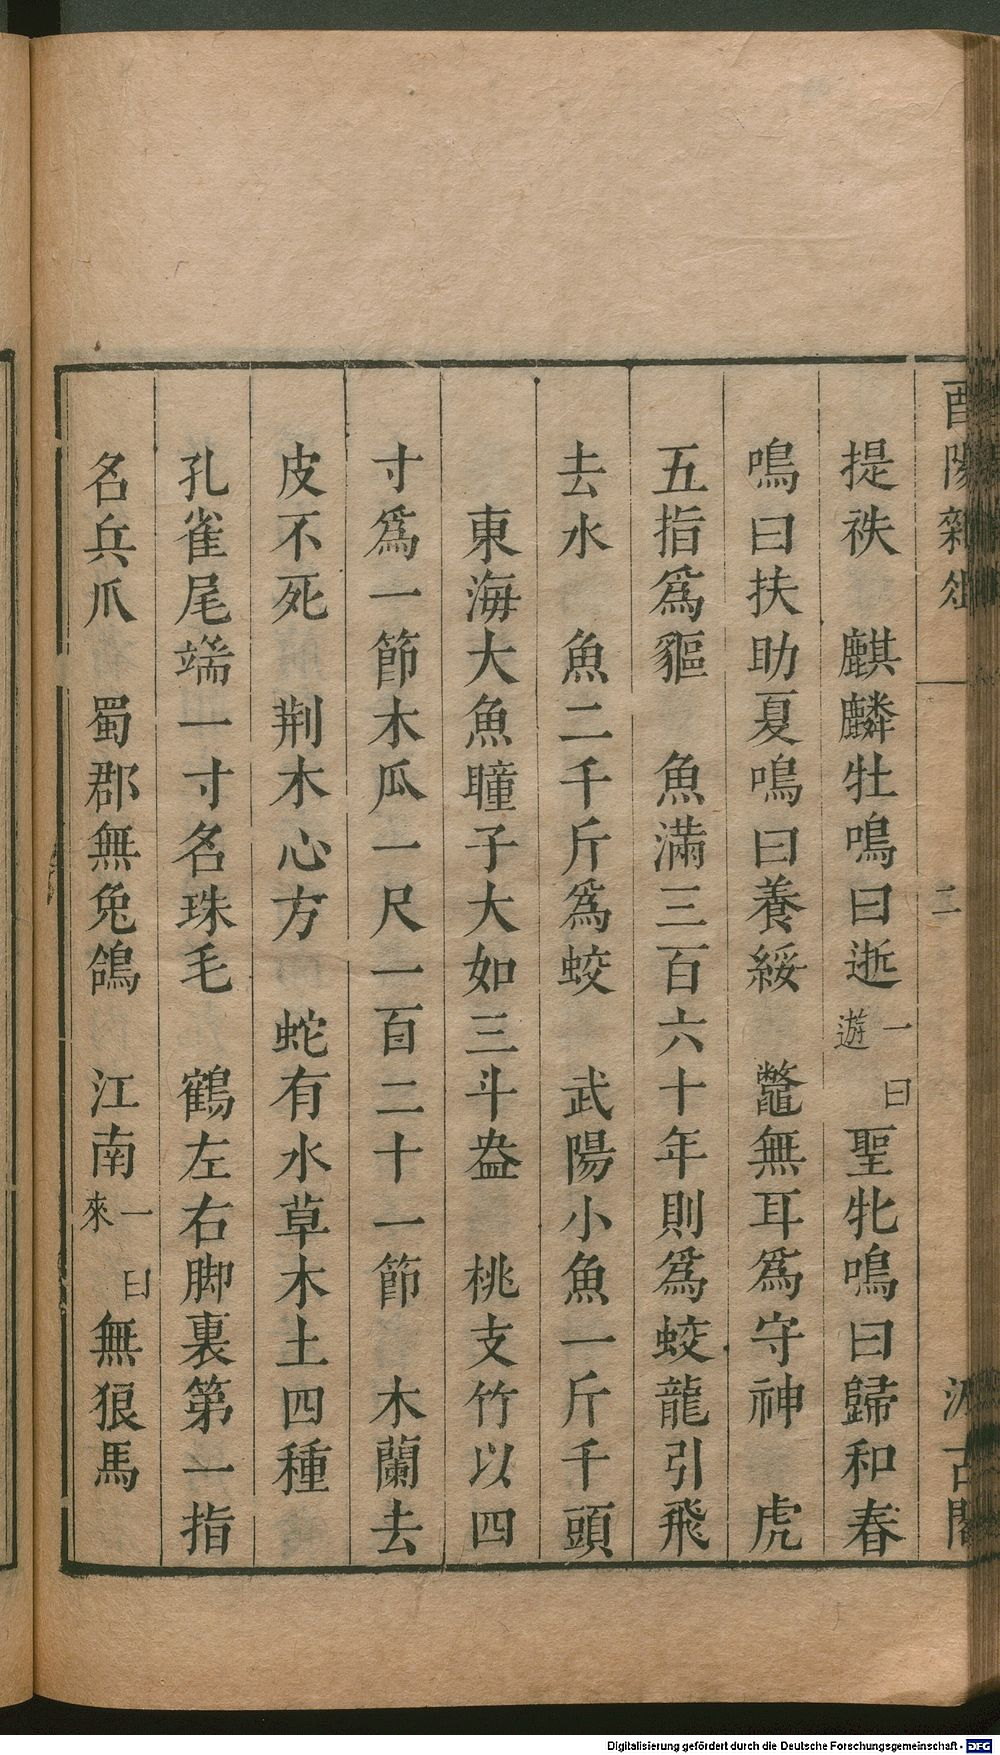 酉陽雜俎 二 汲古閣
提袟　麒麟牡鳴曰逝一曰遊聖牝鳴曰歸和春
鳴曰扶助夏鳴曰養綏　鼈無耳爲守神　虎
五指爲貙　魚滿三百六十年則爲蛟龍引飛
去水　魚二千斤爲蛟　武陽小魚一斤千頭
東海大魚瞳子大如三斗盎　桃支竹以四
寸爲一節木瓜一尺一百二十一節　木蘭去
皮不死　荆木心方　蛇有水草木土四種
孔雀尾端一寸名珠毛　鶴左右脚裏第一指
名兵爪　蜀郡無兔鴿　江南一曰來無狼馬
Digitalisierung gefördert durch die Deutsche Forschungsgemeinschaft - DFG